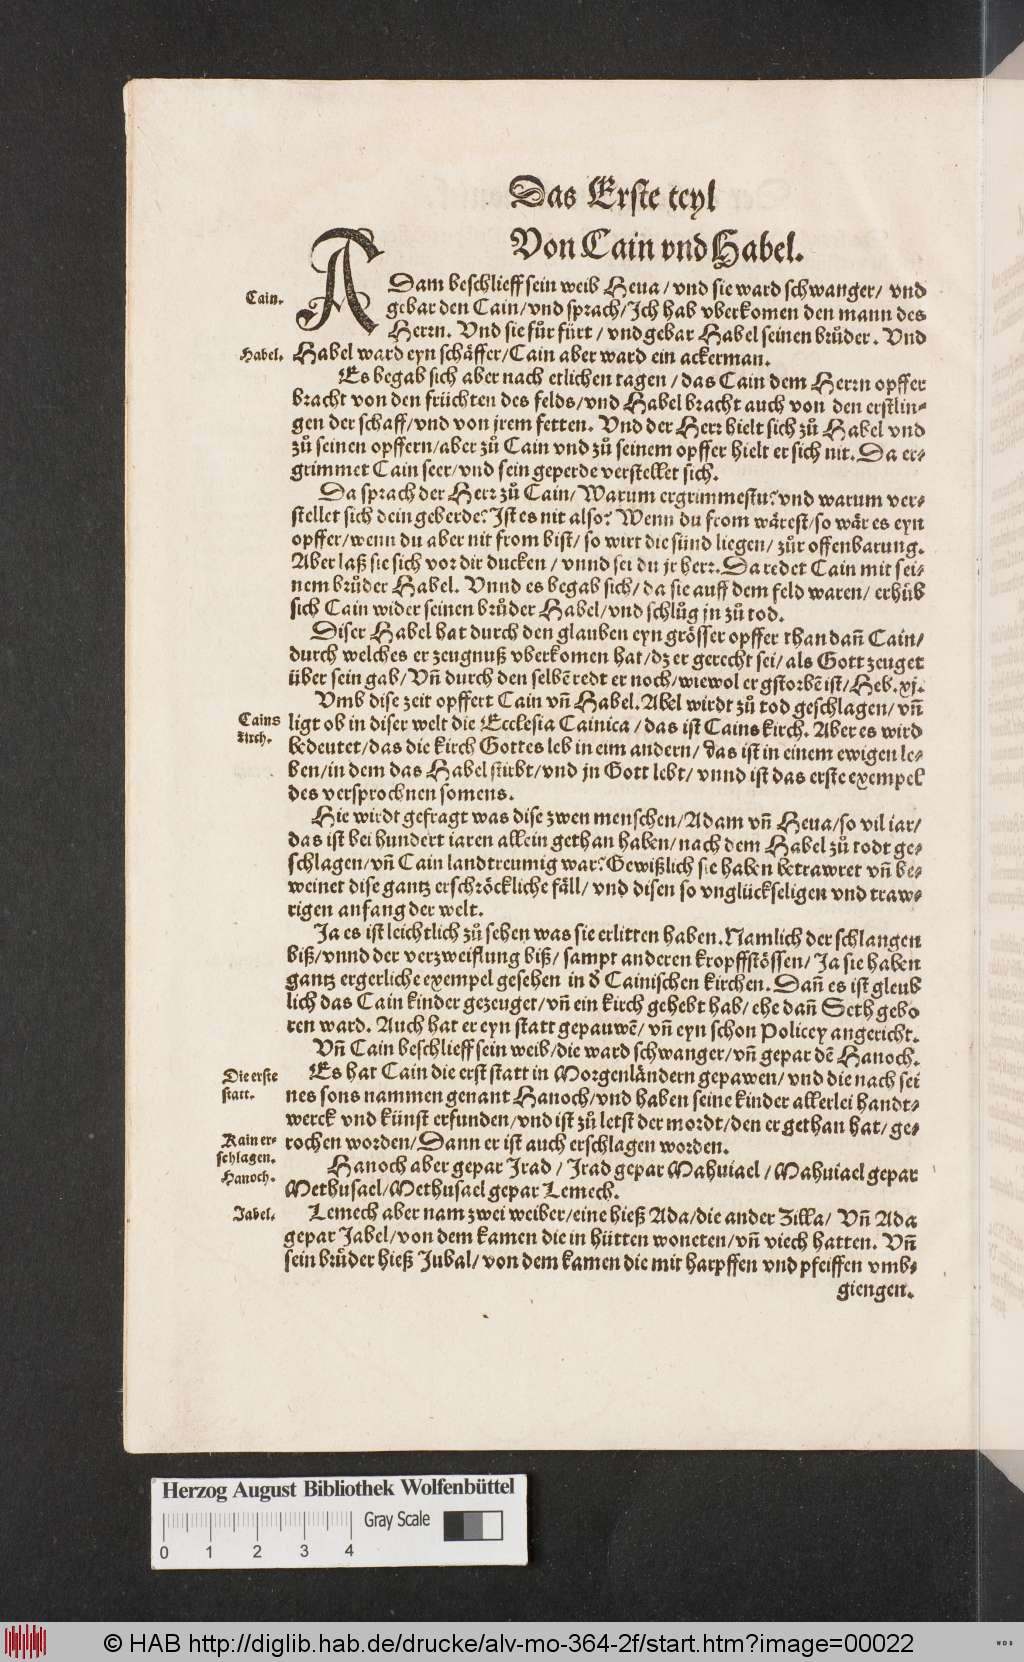 Das Erste teyl
Von Cain vnd Habel.
Cain.
ADam beschlieff sein weib Heua / vnd sie ward schwanger / vnd
gebar den Cain / vnd sprach / Ich hab vberkomen den mann des
Herrn. Vnd sie fůr fürt / vnd gebar Habel seinen brůder. Vnd
Habel.
Habel ward eyn schäffer / Cain aber ward ein ackerman.
Es begab sich aber nach etlichen tagen / das Cain dem Herrn opffer
bracht von den früchten des felds / vnd Habel bracht auch von den erstlin⸗
gen der schaff / vnd von jrem fetten. Vnd der Herr hielt sich zů Habel vnd
zů seinen opffern / aber zů Cain vnd zů seinem opffer hielt er sich nit. Da er⸗
grimmet Cain seer / vnd sein geperde verstellet sich.
Da sprach der Herr zů Cain / Warum ergrimmestu? vnd warum ver⸗
stellet sich dein geberde? Ist es nit also? Wenn du from wärest / so wär es eyn
opffer / wenn du aber nit from bist / so wirt die sünd liegen / zůr offenbarung.
Aber laß sie sich vor dir ducken / vnnd sei du jr herr. Da redet Cain mit sei⸗
nem brůder Habel. Vnnd es begab sich / da sie auff dem feld waren / erhůb
sich Cain wider seinen brůder Habel / vnd schlůg jn zů tod.
Diser Habel hat durch den glauben eyn grösser opffer than dañ Cain /
durch welches er zeugnuß vberkomen hat / dz er gerecht sei / als Gott zeuget
über sein gab / Vñ durch den selbē redt er noch / wiewol er gstorbē ist / Heb. xj.
Vmb dise zeit opffert Cain vñ Habel. Abel wirdt zů tod geschlagen / vñ
Cains
kirch.
ligt ob in diser welt die Ecclesia Cainica / das ist Cains kirch. Aber es wird
bedeutet / das die kirch Gottes leb in eim andern / das ist in einem ewigen le⸗
ben / in dem das Habel stirbt / vnd jn Gott lebt / vnnd ist das erste exempel
des versprochnen somens.
Hie wirdt gefragt was dise zwen menschen / Adam vñ Heua / so vil iar /
das ist bei hundert iaren allein gethan haben / nach dem Habel zů todt ge⸗
schlagen / vñ Cain landtreumig war? Gewißlich sie haben betrawret vñ be⸗
weinet dise gantz erschröckliche fäll / vnd disen so vnglückseligen vnd traw⸗
rigen anfang der welt.
Ja es ist leichtlich zů sehen was sie erlitten haben. Namlich der schlangen
biß / vnnd der verzweiflung biß / sampt anderen kropffstössen / Ja sie haben
gantz ergerliche exempel gesehen in d̕ Cainischen kirchen. Dañ es ist gleub
lich das Cain kinder gezeuget / vñ ein kirch gehebt hab / ehe dañ Seth gebo
ren ward. Auch hat er eyn statt gepauwē / vñ eyn schon Policey angericht.
Vñ Cain beschlieff sein weib / die ward schwanger / vñ gepar dē Hanoch.
Die erste
statt.
Es hat Cain die erst statt in Morgenländern gepawen / vnd die nach sei
nes sons nammen genant Hanoch / vnd haben seine kinder allerlei handt⸗
werck vnd künst erfunden / vnd ist zů letst der mordt / den er gethan hat / ge⸗
Kain er⸗
schlagen.
rochen worden / Dann er ist auch erschlagen worden.
Hanoch.
Hanoch aber gepar Irad / Irad gepar Mahuiael / Mahuiael gepar
Methusael / Methusael gepar Lemech.
Jabel.
Lemech aber nam zwei weiber / eine hieß Ada / die ander Zilla / Vñ Ada
gepar Jabel / von dem kamen die in hütten woneten / vñ viech hatten. Vñ
sein brůder hieß Jubal / von dem kamen die mit harpffen vnd pfeiffen vmb⸗
giengen.
Herzog August Bibliothek Wolfenbüttel
Gray Scale
0 1 2 3 4
© HAB http://diglib.hab.de/drucke/alv-mo-364-2f/start.htm?image=00022